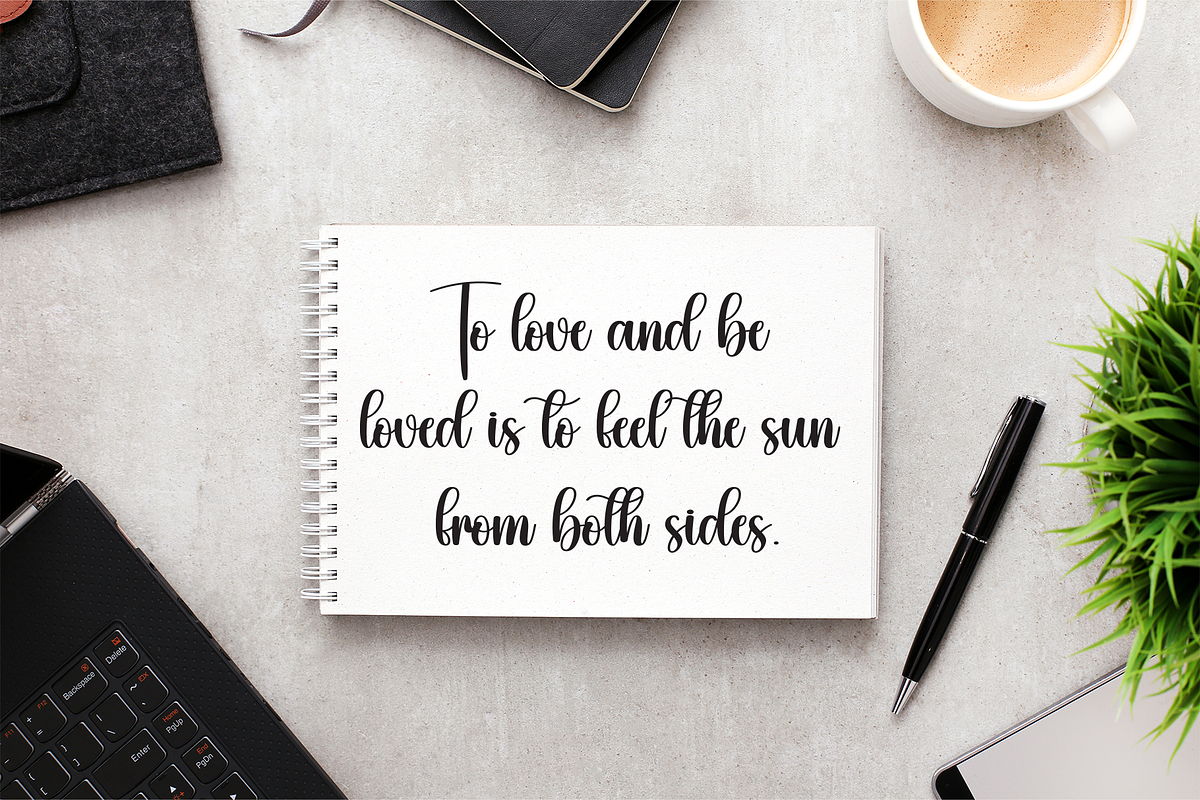 To love and be
loved is to feel the sun
from both sides.
Delete
Backspace
Home
PgUp
Enter
End
PgDn
F12
F11